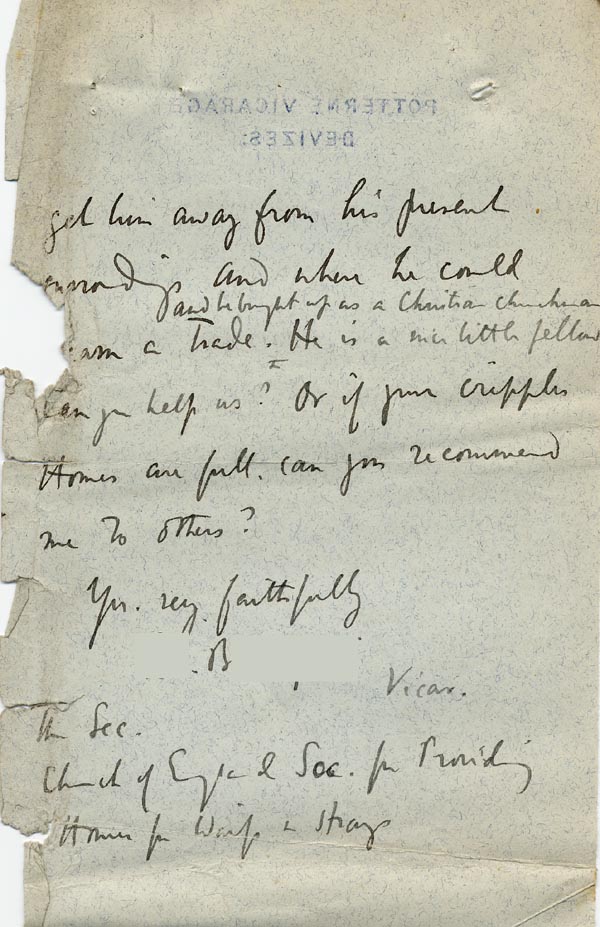 POTTERNE VICARAGE
DEVIZES.
get him away from his present
surroundings and where he could
and be brought up as a Christian churchman
learn a trade. He is a nice little fellow
Can you help us? Or if your cripples
Homes are full. can you recommend
me to others?
Yrs. very faithfully
B
Vicar.
The Sec.
Church of England Soc. for Providing
Homes for Waifs & Strays